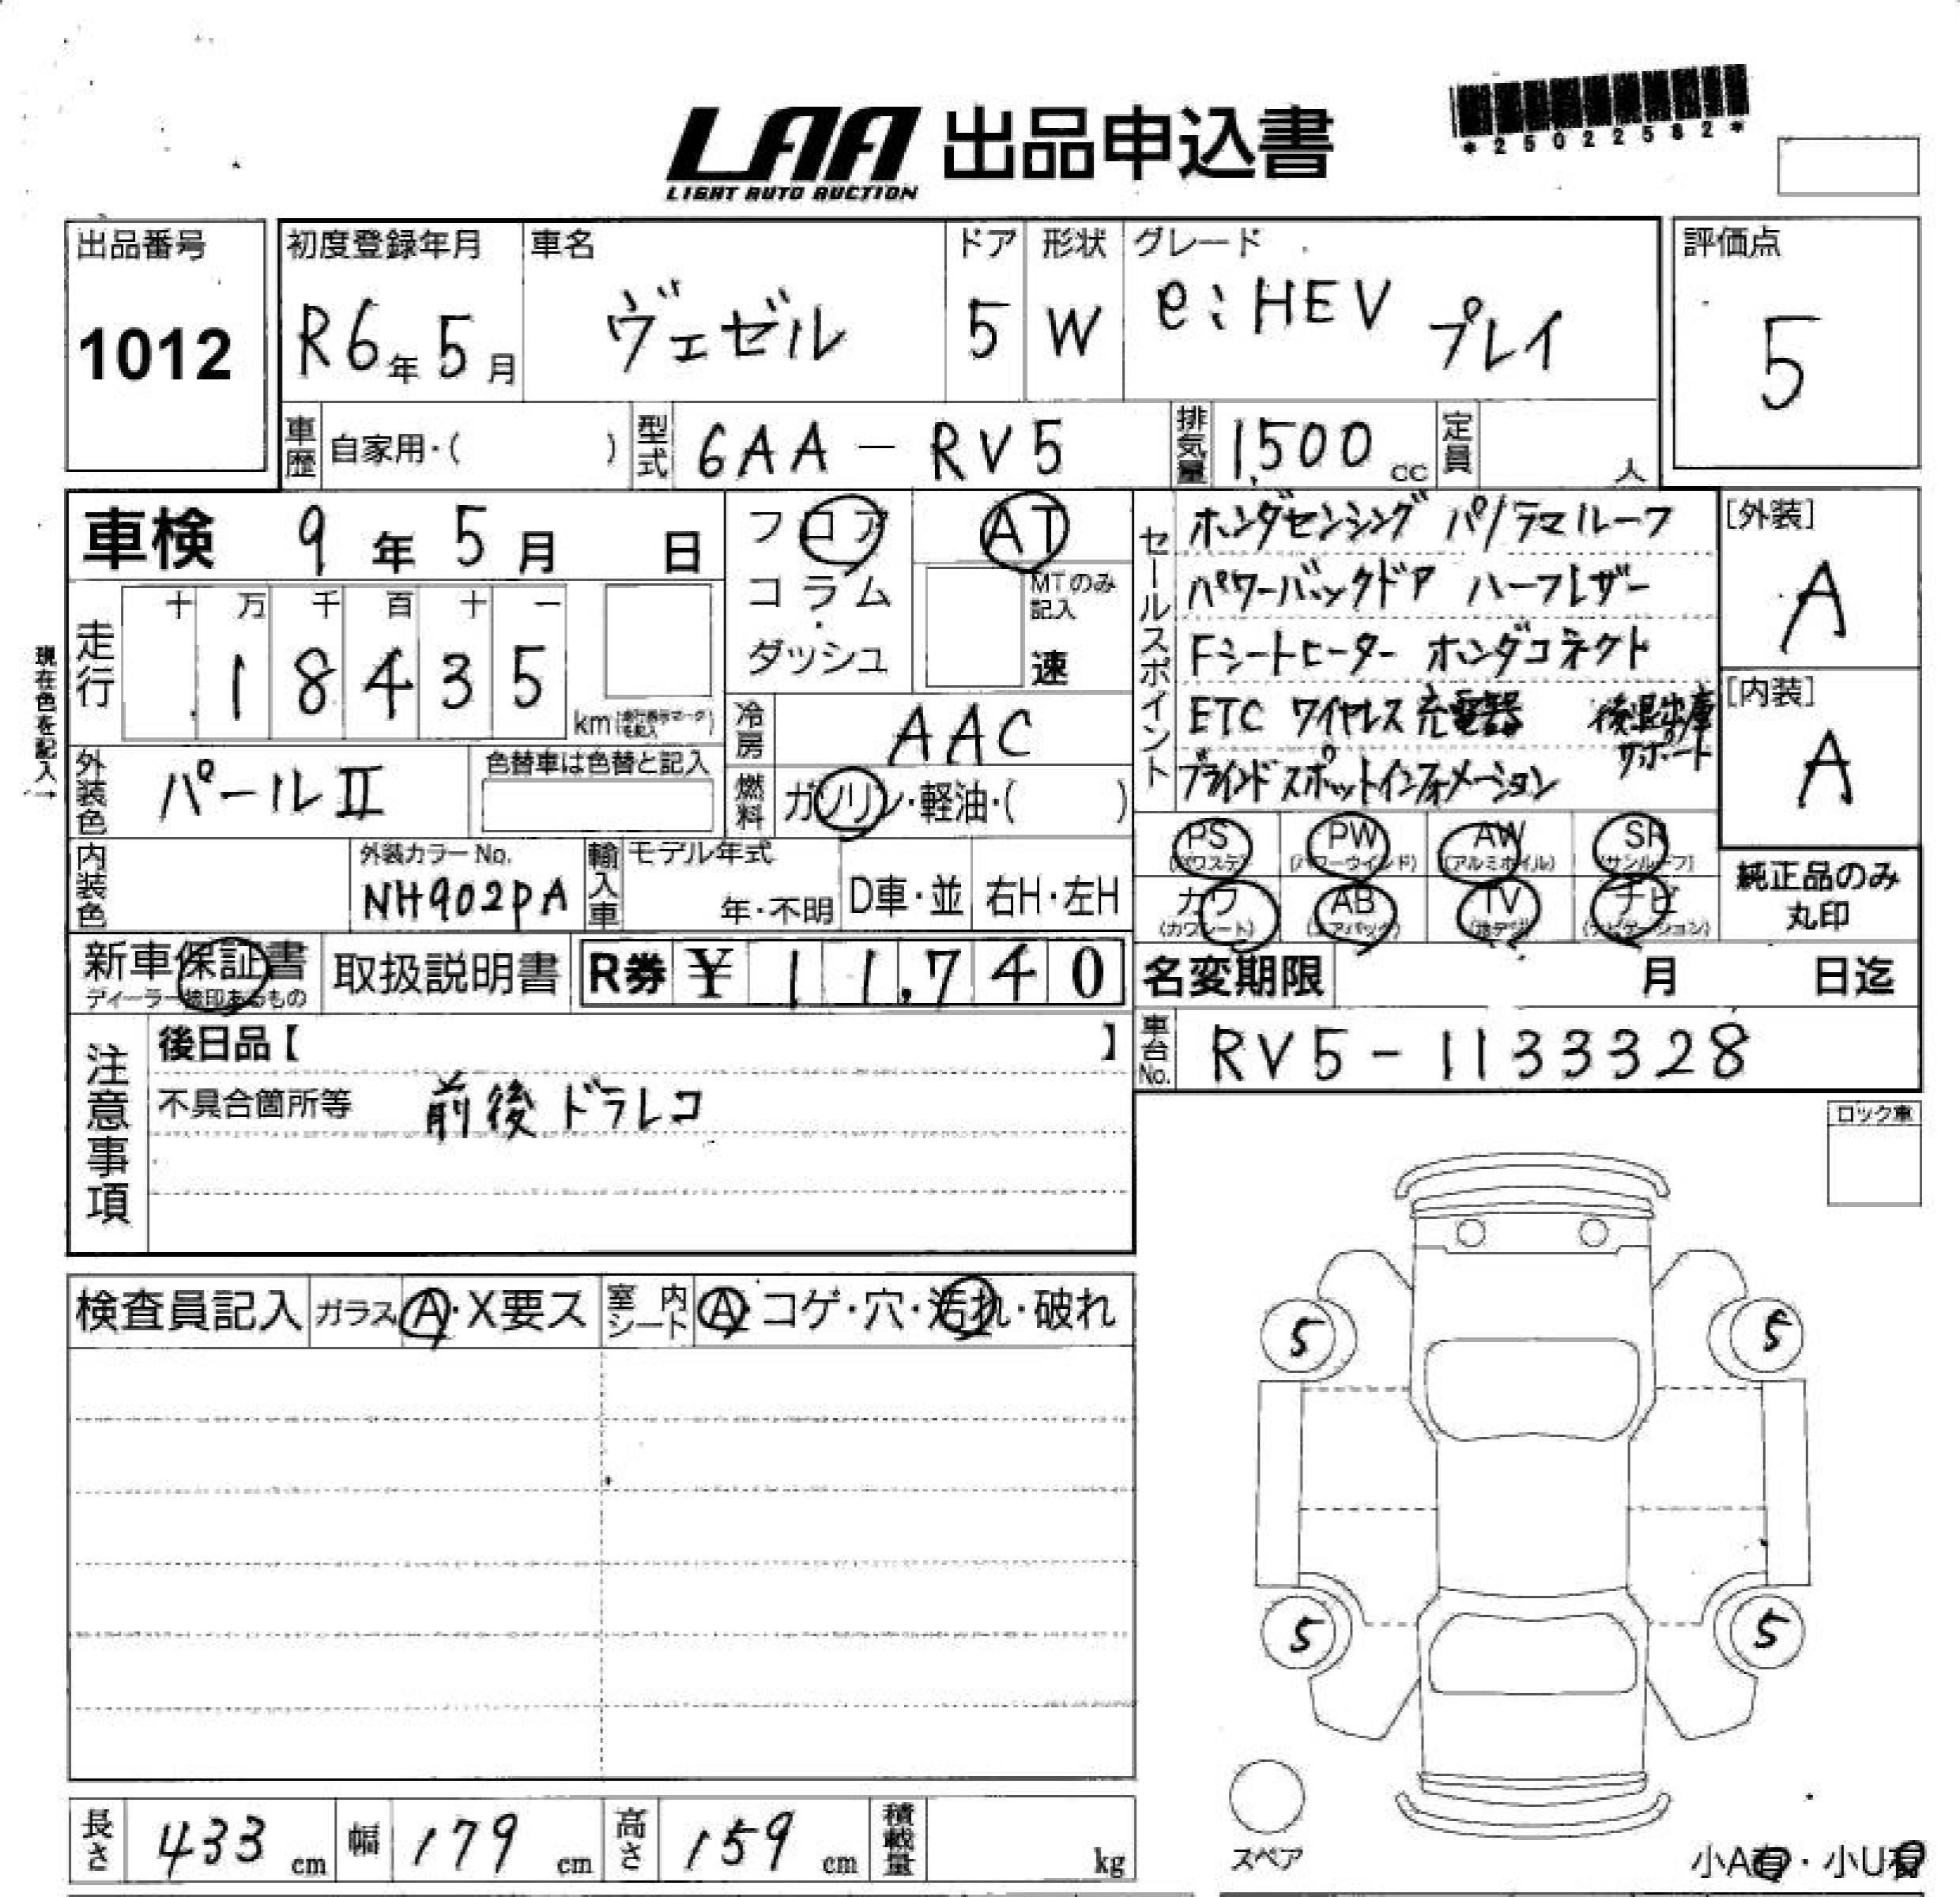 LAA 出品申込書
LIGHT AUTO AUCTION
*25022582*
出品番号
1012
初度登録年月
R6年5月
車名
ヴェゼル
ドア
5
形状
W
グレード
e:HEV プレイ
評価点
5
車歴 自家用・( )
型式 6AA-RV5
排気量 1,500 cc
定員 人
車検 9年5月 日
走行 十 万 千 百 十 一
18435 km
現在色を記入→
フロア
コラム
・
ダッシュ
AT
MTのみ
記入
速
冷房 AAC
燃料 ガソリン・軽油・( )
セールスポイント
ホンダセンシング パノラマルーフ
パワーバックドア ハーフレザー
Fシートヒーター ホンダコネクト
ETC ワイヤレス充電器 後退出庫サポート
ブラインドスポットインフォメーション
[外装]
A
[内装]
A
外装色 パールII
色替車は色替と記入
内装色
外装カラーNo.
NH902PA
輸入車 モデル年式
年・不明 D車・並 右H・左H
PS (パワステ) PW (パワーウインド) AW (アルミホイル) SR (サンルーフ)
カワ (カワシート) AB (エアバック) TV (地デジ) ナビ (ナビゲーション)
純正品のみ
丸印
新車保証書
ディーラー捺印あるもの
取扱説明書
R券 ¥11,740
名変期限 月 日迄
車台No. RV5-1133328
注意事項
後日品【 】
不具合箇所等 前後ドラレコ
ロック車
検査員記入 ガラス A・X要ス 室内シート A・コゲ・穴・汚れ・破れ
5 5
5 5
スペア
小A有・小U有
長さ 433 cm 幅 179 cm 高さ 159 cm 積載量 kg